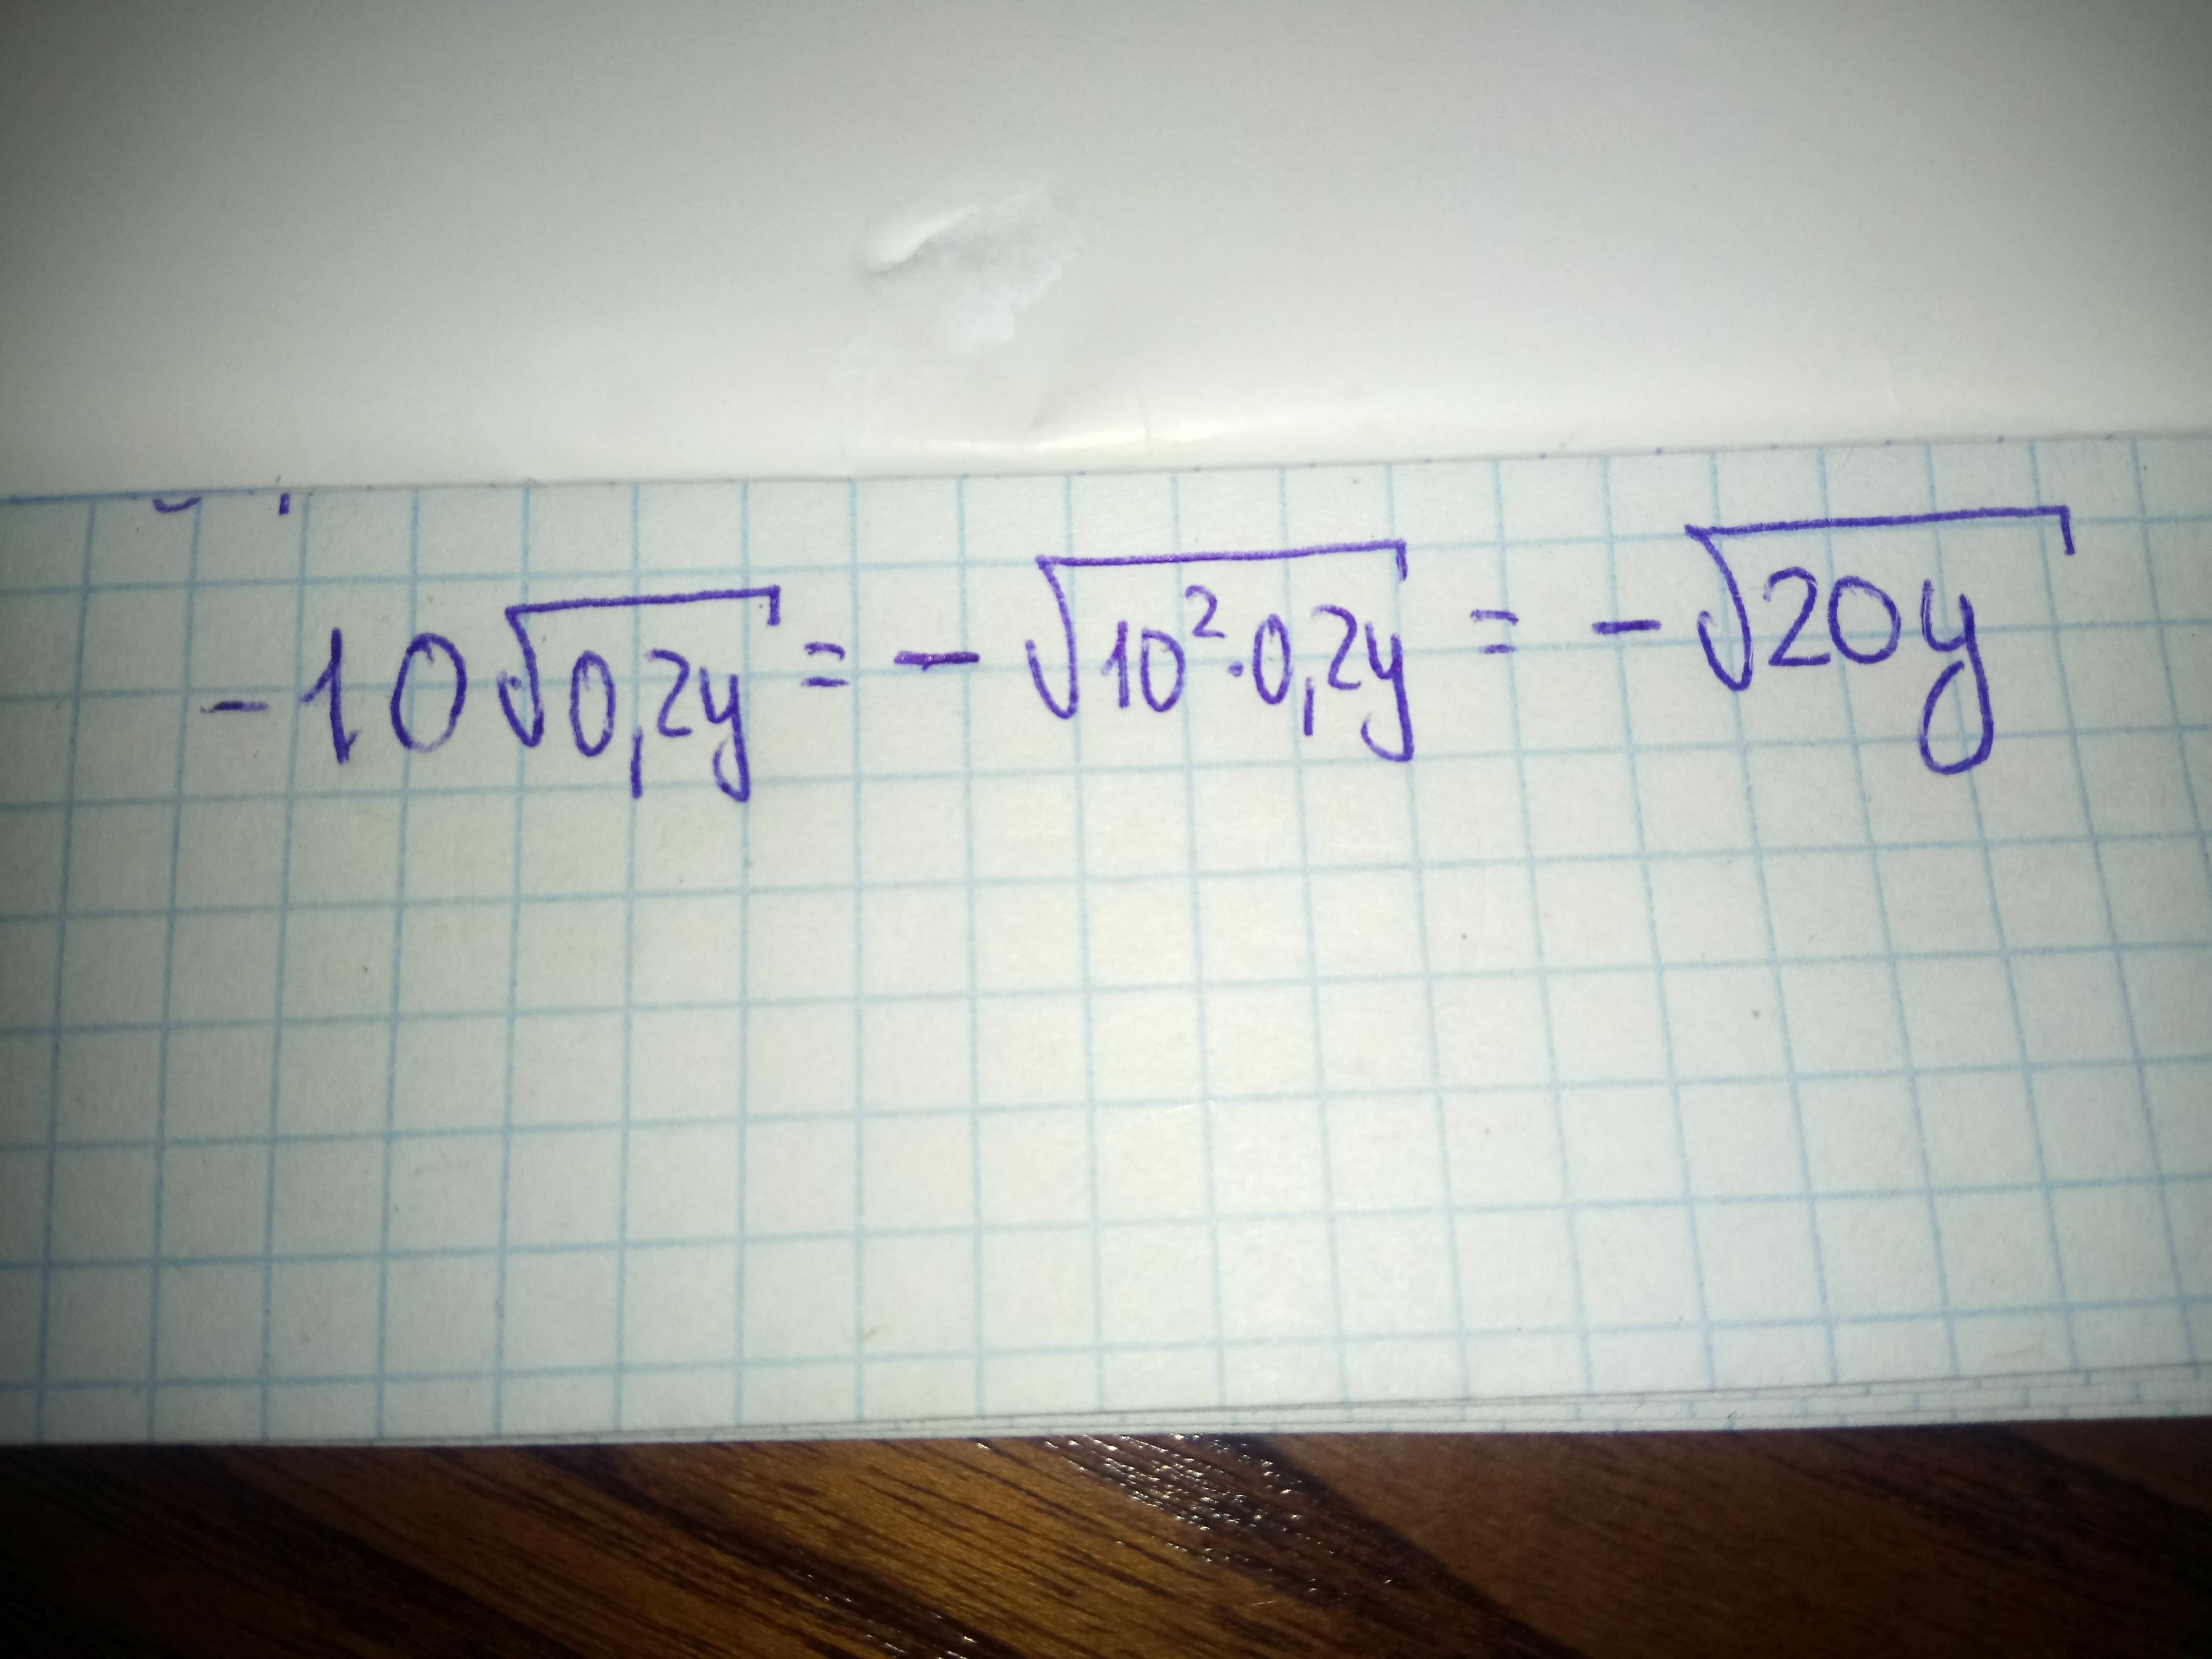 -10√0,2y = -√10²·0,2y = -√20y